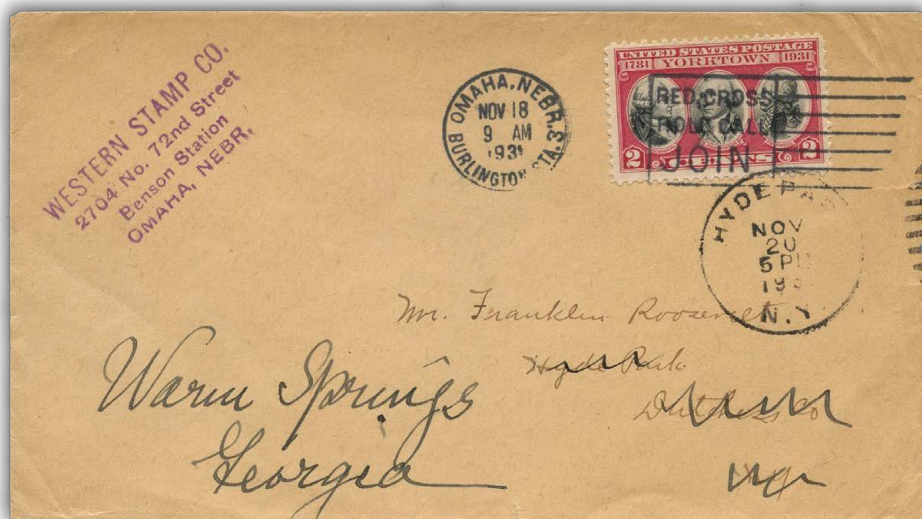 WESTERN STAMP CO.
2704 No. 72nd Street
Benson Station
OMAHA, NEBR.
OMAHA, NEBR.
BURLINGTON STA. 3
NOV 18
9 AM
1931
UNITED STATES POSTAGE
1781 YORKTOWN 1931
2 CENTS 2
RED CROSS
ROLL CALL
JOIN
HYDE PARK
NOV
20
5 PM
193
N.Y.
Mr. Franklin Roosevelt
Hyde Park
Dutchess Co
Warm Springs
Georgia